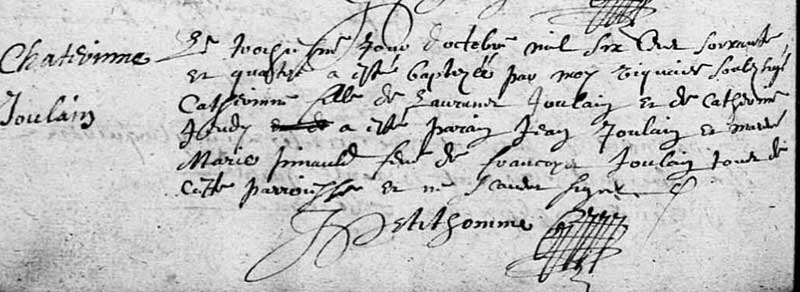 Chaterinne
Joulain
Le troesiesme Jour doctobre mil six cent soixante
et quattre a esté baptizée par moy vicquaire soubzsigné
Catherinne fille de Laurance Joulain et de Catherine
Joudz a esté parain Jean Joulain et mare
Marie pinauld feme de francoys Joulain tous de
cette parroisse et ne scavent signer
Petithomme